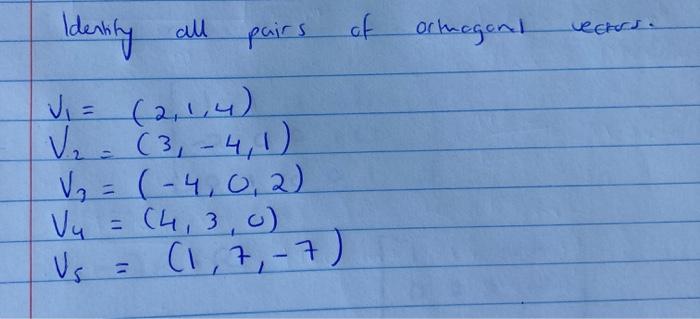 Identify all pairs of orthogonal vectors.
V₁ = (2,1,4)
V₂ = (3,-4,1)
V₃ = (-4,0,2)
V₄ = (4,3,0)
V₅ = (1,7,-7)